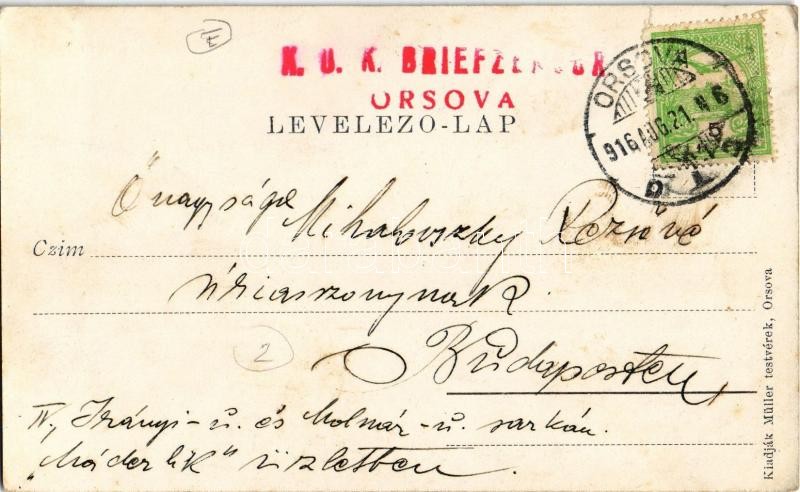 E
K. U. K. BRIEFZENSUR
ORSOVA
LEVELEZO-LAP
ORSOVA
916 AUG. 21. N 6
5
Önagysága Mihalovszky Rezsőné
Czim
úriasszonynak
2
Budapesten
IV., Irányi-u. és Molnár-u. sarkán.
üzletben.
Kiadják Müller testvérek, Orsova